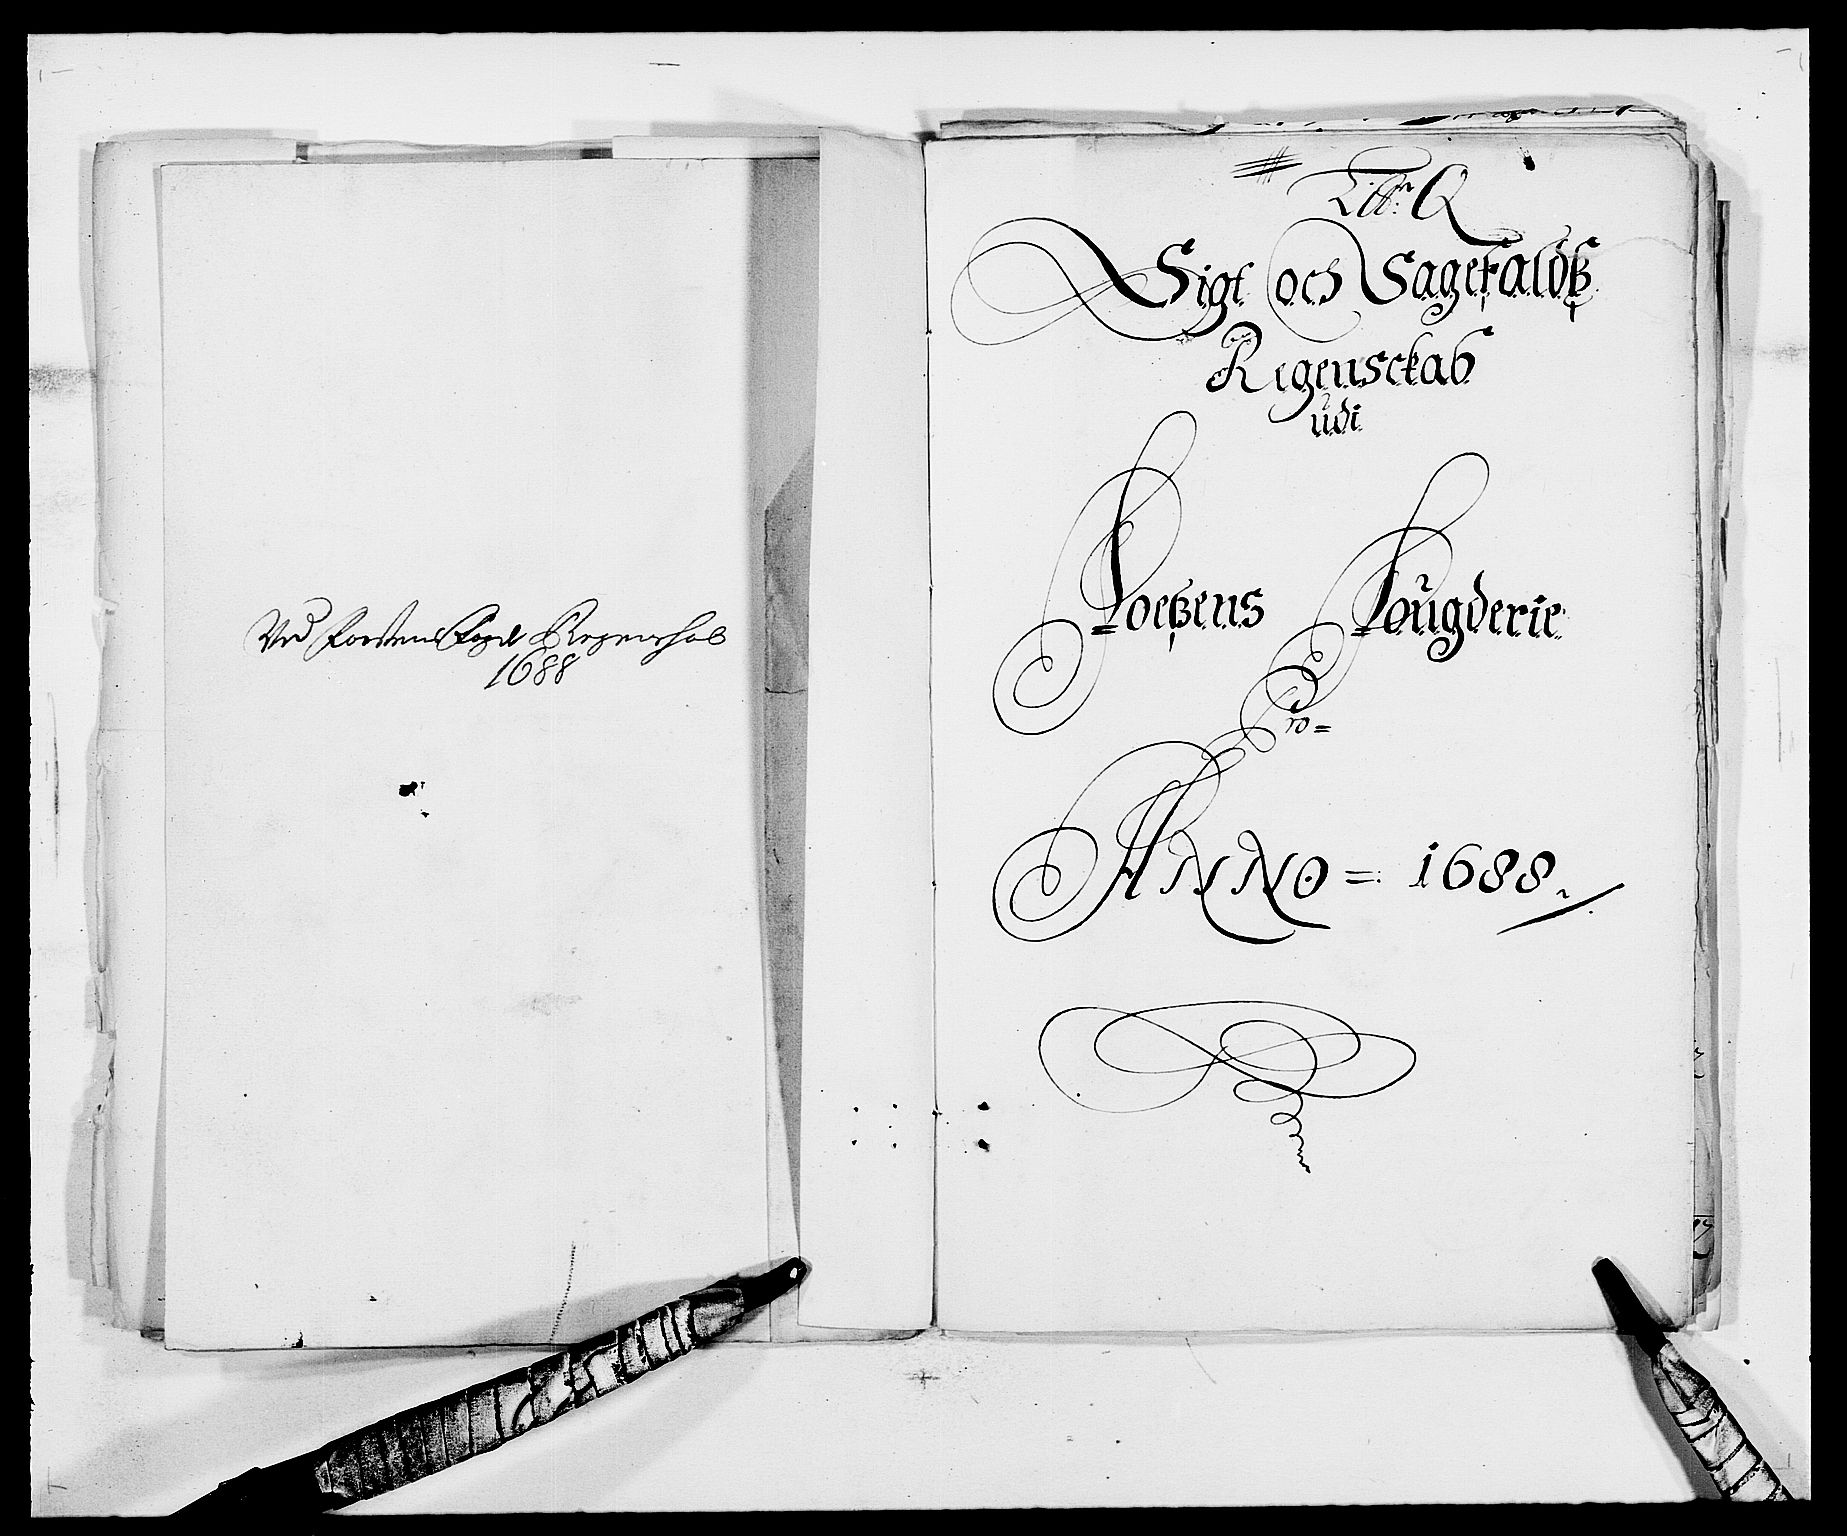 Ved Foesens Fogd Regenschab
1688
Litr: Q
Sigt och Sagefaldtz
Regensckab
udi
Foetzens Fougderie
Pro=
ANNO = 1688.